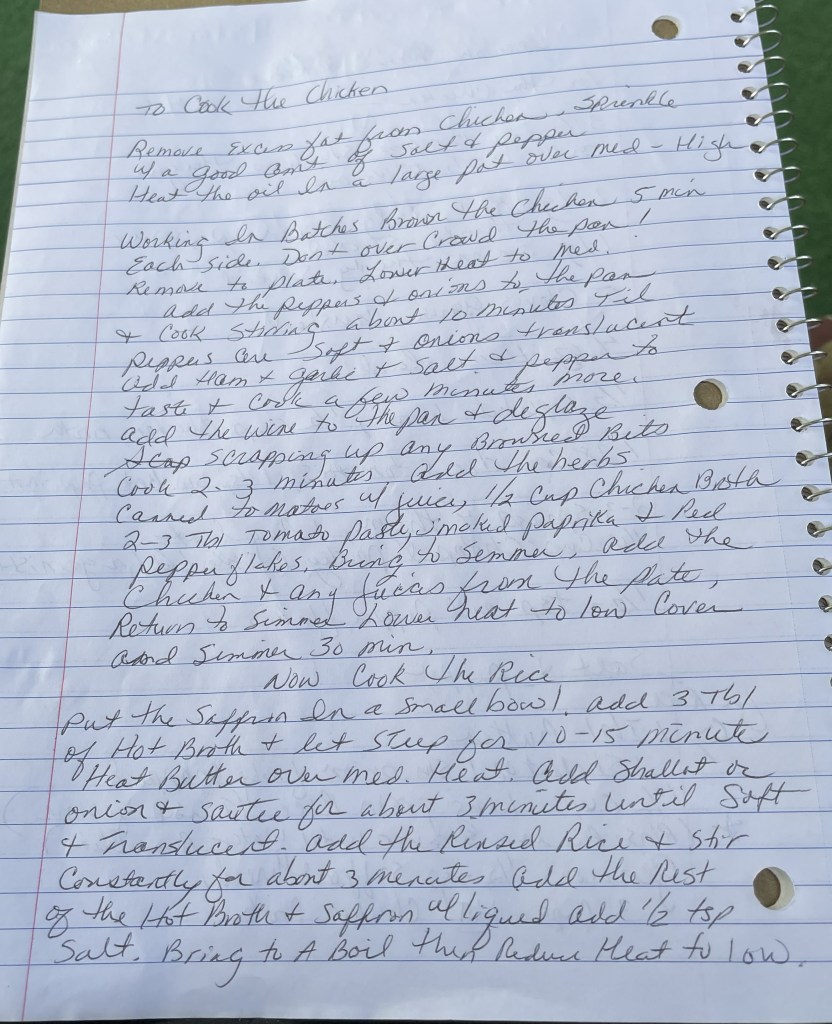 To Cook the Chicken
Remove Excess fat from Chicken. Sprinkle
w/ a good amt of Salt & pepper
Heat the oil In a large pot over med-High
Working In Batches Brown the Chicken 5 min
Each side. Dont over Crowd the pan!
Remove to plate. Lower Heat to med.
add the peppers & onions to the pan
& Cook Stirring about 10 minutes Til
peppers are Soft & onions translucent
add Ham & garlic & Salt & pepper to
taste & Cook a few minutes more.
add the wine to the pan & deglaze
Scap scrapping up any Browned Bits
Cook 2-3 minutes, add the herbs
Canned tomatoes w/ juice, 1/2 Cup Chicken Broth
2-3 Tbl Tomato Paste, smoked paprika & Red
Pepper flakes. Bring to Semmer, add the
Chicken & any juicas from the plate,
Return to Simmer Lower heat to low Cover
and Simmer 30 min.
Now Cook the Rice
put the Saffron In a Small bowl. add 3 Tbl
of Hot Broth & let STeep for 10-15 minute
Heat Butter over med. Heat. add Shallot or
onion & sautee for about 3 minutes until Soft
& Translucent. add the Rinsed Rice & Stir
Constantly for about 3 menutes add the Rest
of the Hot Broth & Saffron w/ liqued add 1/2 tsp
Salt. Bring to A Boil then Reduce Heat to low.